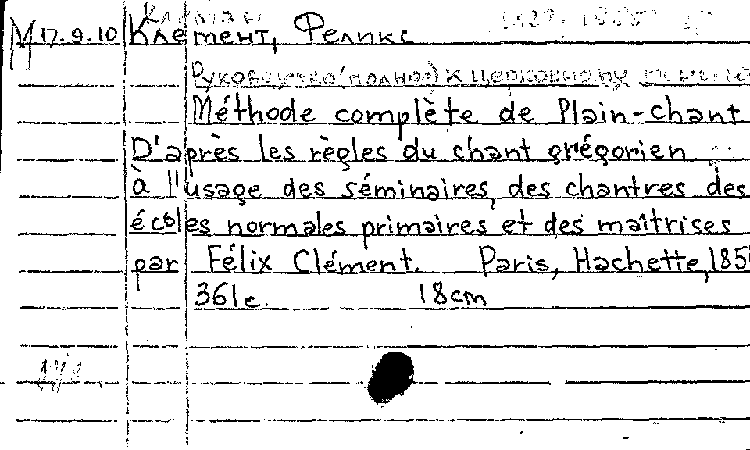 М 17.9.10 Клемент, Феликс
Руководство (полное) к церковному
Méthode complète de Plain-chant
D'après les règles du chant grégorien
à l'usage des séminaires, des chantres des
écoles normales primaires et des maîtrises
par Félix Clément. Paris, Hachette, 185
361 с. 18 cm